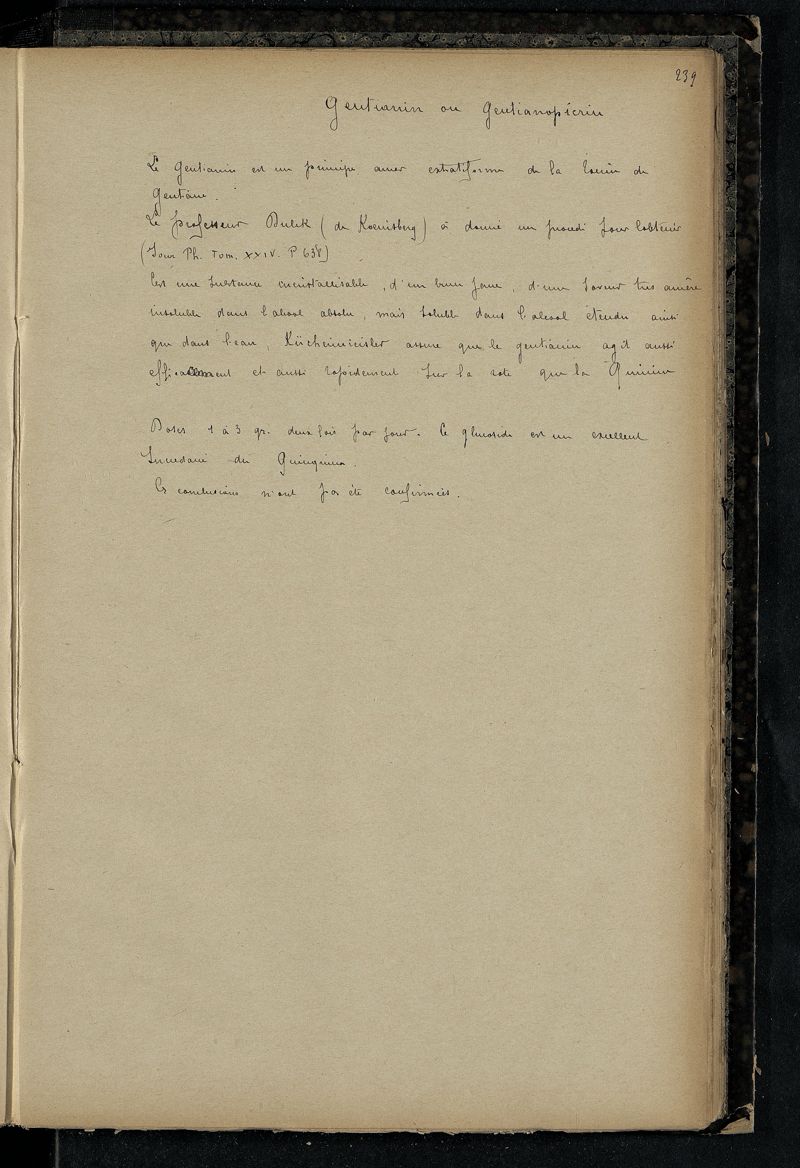 239
Gentianin ou Gentianopicrin
Le Gentianin est un principe amer extratiforme de la racine de
Gentiane.
Le professeur Dulck (de Koenisberg) à donné un procédé pour l'obtenir
(Jour Ph. Tom. XXIV. P 638)
C'est une substance incristallisable, d'un brun jaune, d'une saveur très amère
insoluble dans l'alcool absolu, mais soluble dans l'alcool étendu ainsi
que dans l'eau, Küchenmeister assure que le gentianin agit aussi
efficacement et aussi rapidement sur la rate que la Quinine
Doses 1 à 3 gr. deux fois par jour. Ce glucoside est un excellent
succédané du Quinquina.
Ces conclusions n'ont pas été confirmées.